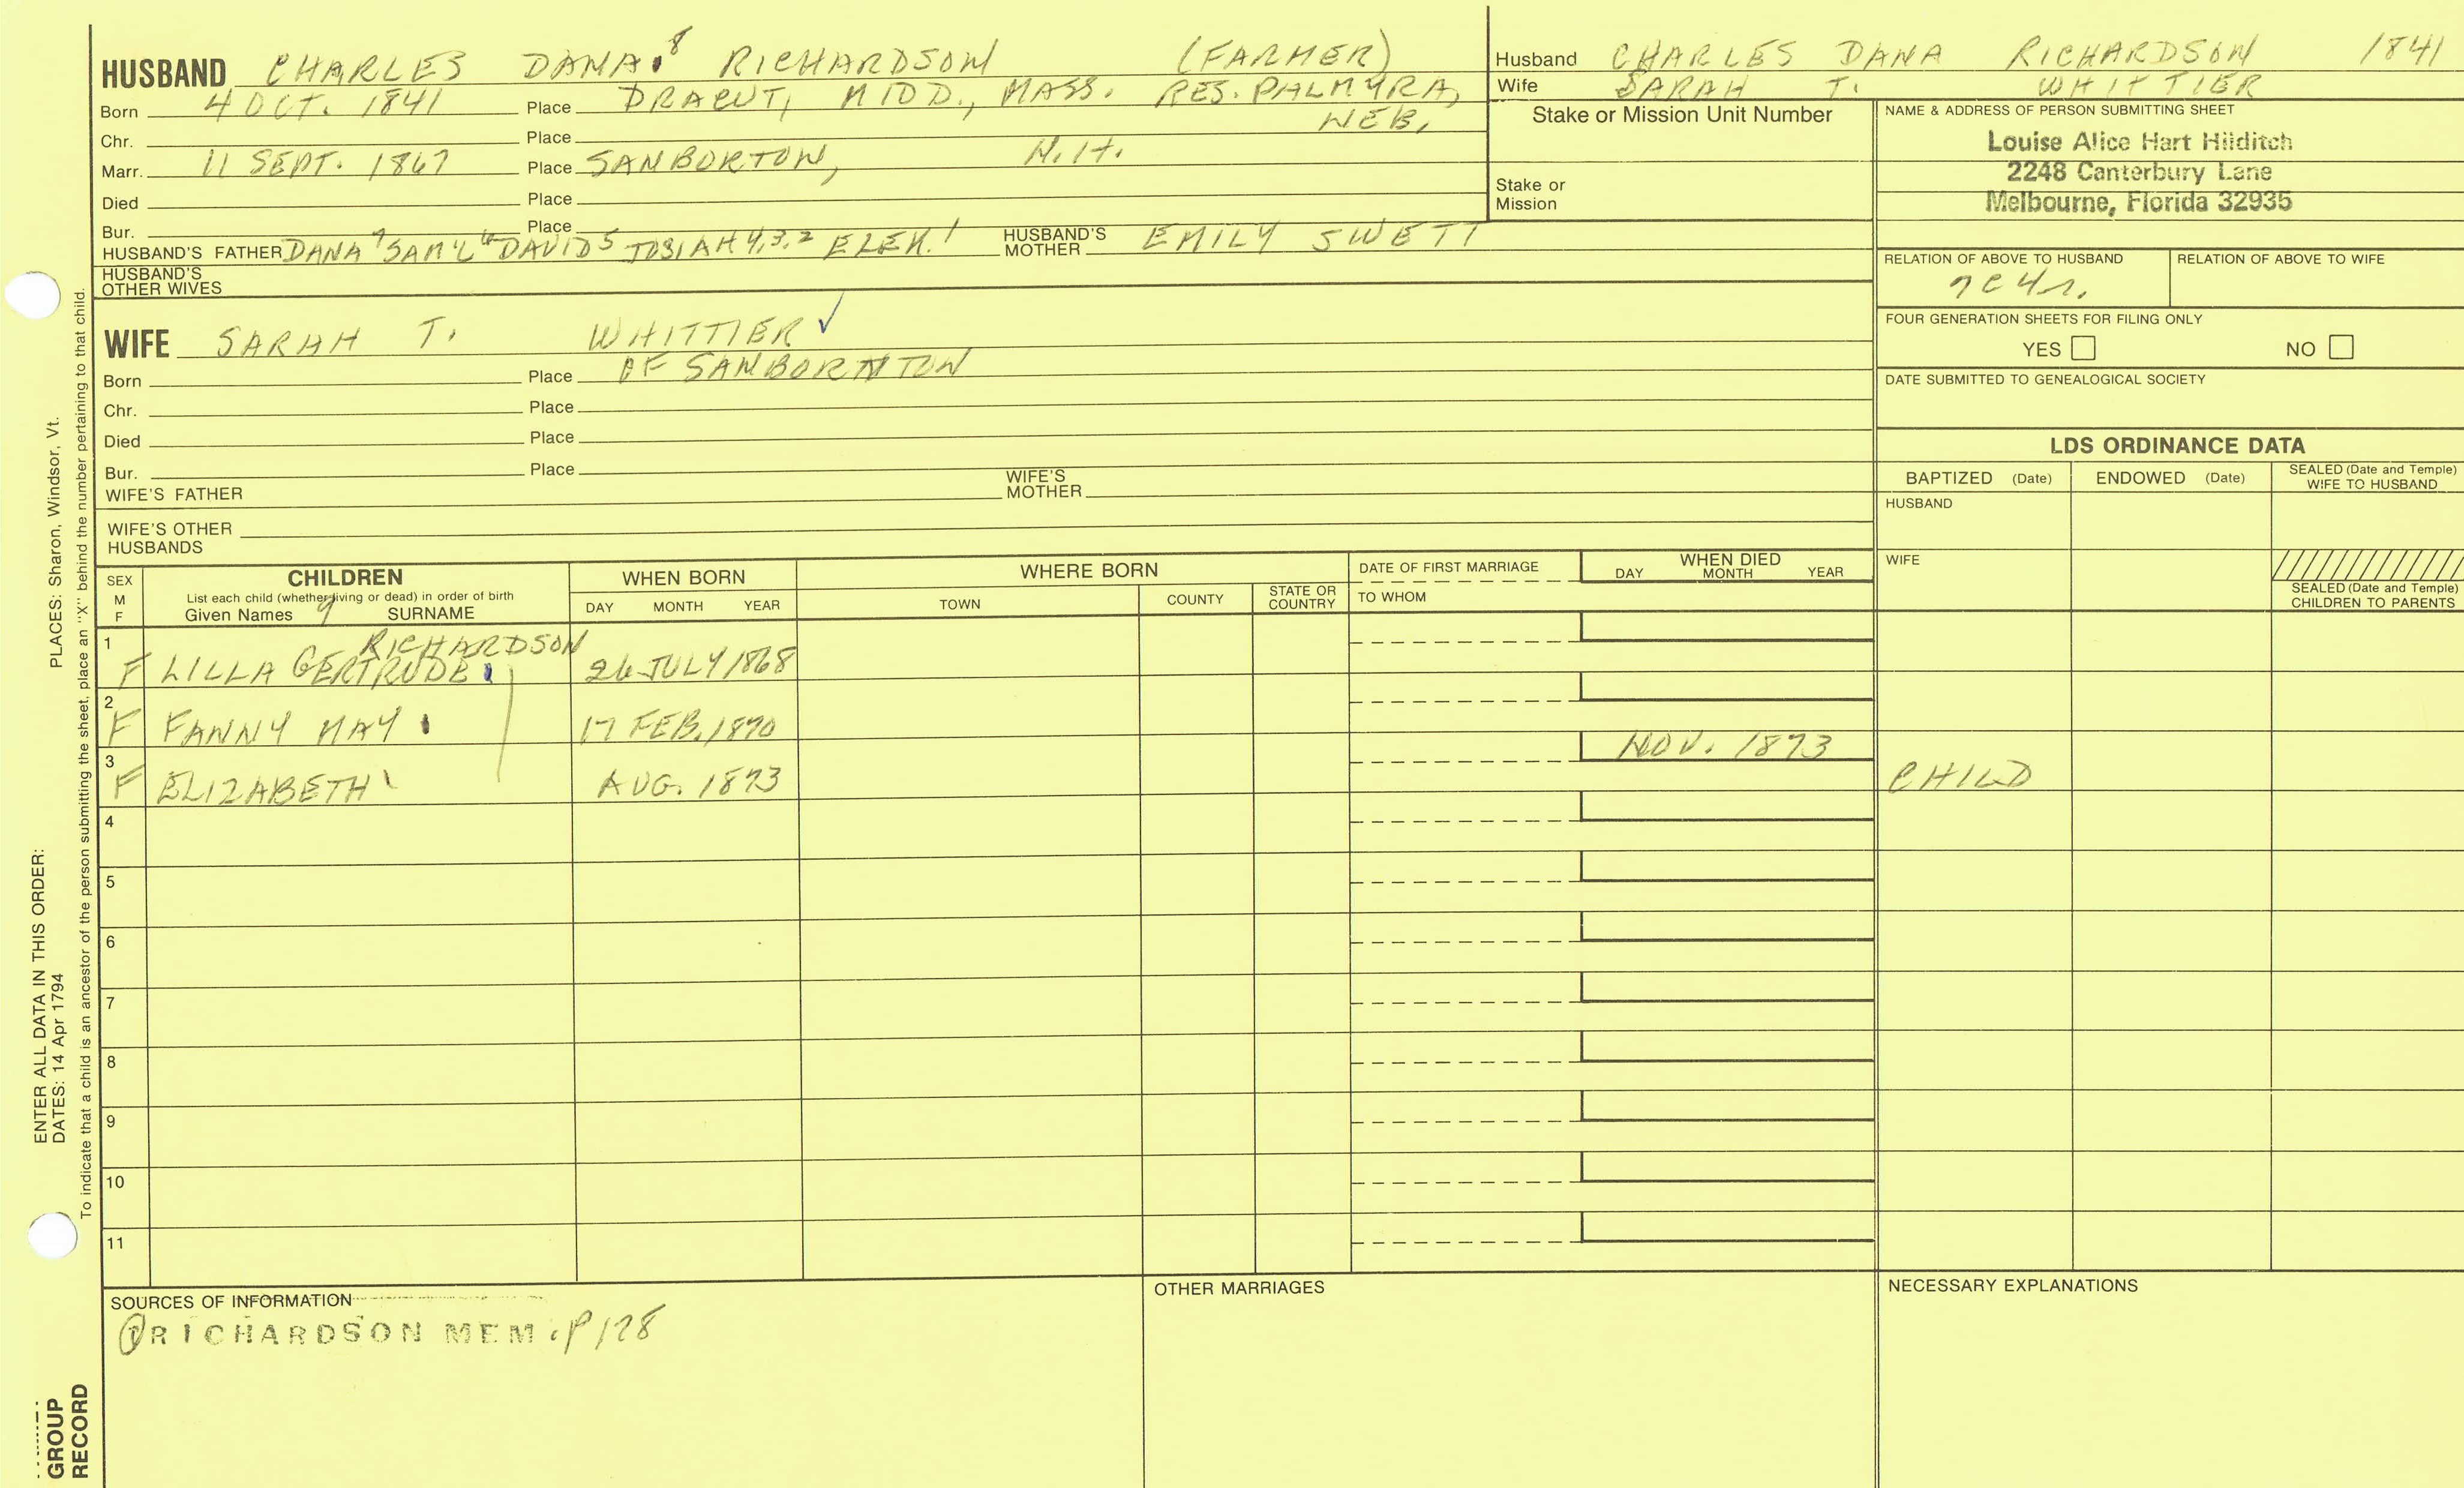 HUSBAND CHARLES DANA 8 RICHARDSON (FARMER)
Born 4 OCT. 1841 Place DRACUT, MIDD., MASS. RES. PALMYRA,
NEB.
Chr. Place
Marr. 11 SEPT. 1867 Place SANBORTON, N.H.
Died Place
Bur. Place
HUSBAND'S FATHER DANA 7 SAM'L 6 DAVID 5 JOSIAH 4,3,2 EZEK. 1 HUSBAND'S MOTHER EMILY SWETT
HUSBAND'S OTHER WIVES
Husband CHARLES DANA RICHARDSON 1841
Wife SARAH T. WHITTIER
Stake or Mission Unit Number
Stake or Mission
NAME & ADDRESS OF PERSON SUBMITTING SHEET
Louise Alice Hart Hilditch
2248 Canterbury Lane
Melbourne, Florida 32935
RELATION OF ABOVE TO HUSBAND RELATION OF ABOVE TO WIFE
7C4r.
FOUR GENERATION SHEETS FOR FILING ONLY
YES NO
DATE SUBMITTED TO GENEALOGICAL SOCIETY
WIFE SARAH T. WHITTIER ✓
Born Place OF SANBORNTON
Chr. Place
Died Place
Bur. Place
WIFE'S FATHER WIFE'S MOTHER
WIFE'S OTHER HUSBANDS
LDS ORDINANCE DATA
BAPTIZED (Date) ENDOWED (Date) SEALED (Date and Temple) WIFE TO HUSBAND
HUSBAND
WIFE
SEALED (Date and Temple) CHILDREN TO PARENTS
SEX M F
CHILDREN
List each child (whether living or dead) in order of birth
Given Names 9 SURNAME
WHEN BORN
DAY MONTH YEAR
WHERE BORN
TOWN COUNTY STATE OR COUNTRY
DATE OF FIRST MARRIAGE
TO WHOM
WHEN DIED
DAY MONTH YEAR
1 RICHARDSON
F LILLA GERTRUDE 26 JULY 1868
2
F FANNY MAY 17 FEB. 1870
3 NOV. 1873
F ELIZABETH AUG. 1873 CHILD
4
5
6
7
8
9
10
11
SOURCES OF INFORMATION
① RICHARDSON MEM. P 128
OTHER MARRIAGES
NECESSARY EXPLANATIONS
ENTER ALL DATA IN THIS ORDER:
DATES: 14 Apr 1794 PLACES: Sharon, Windsor, Vt.
To indicate that a child is an ancestor of the person submitting the sheet, place an "X" behind the number pertaining to that child.
GROUP
RECORD